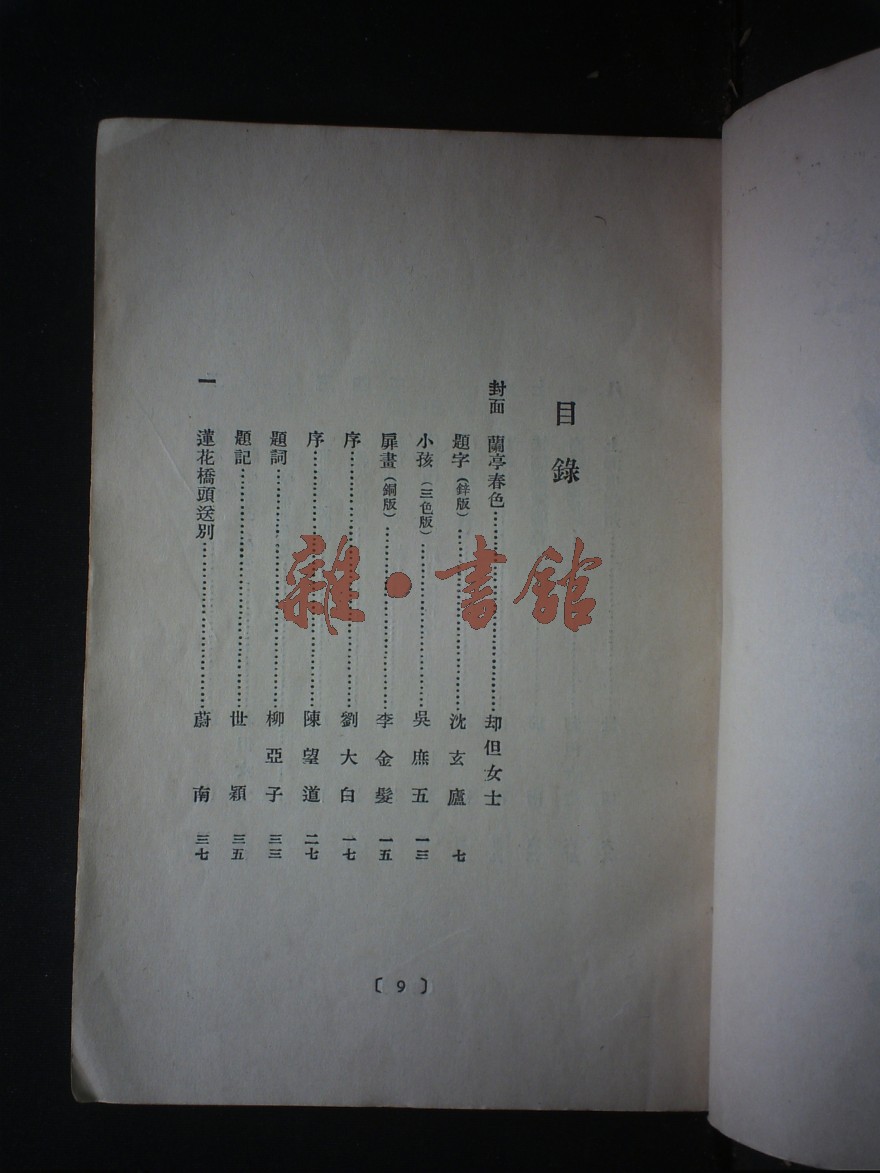 目錄
封面 蘭亭春色……却但女士
題字(鋅版)……沈玄廬 七
小孩(三色版)……吳庶五 一三
扉畫(銅版)……李金髮 一五
序……劉大白 一七
序……陳望道 二七
題詞……柳亞子 三三
題記……世穎 三五
一 蓮花橋頭送別……蔚南 三七
〔9〕
雜·書館